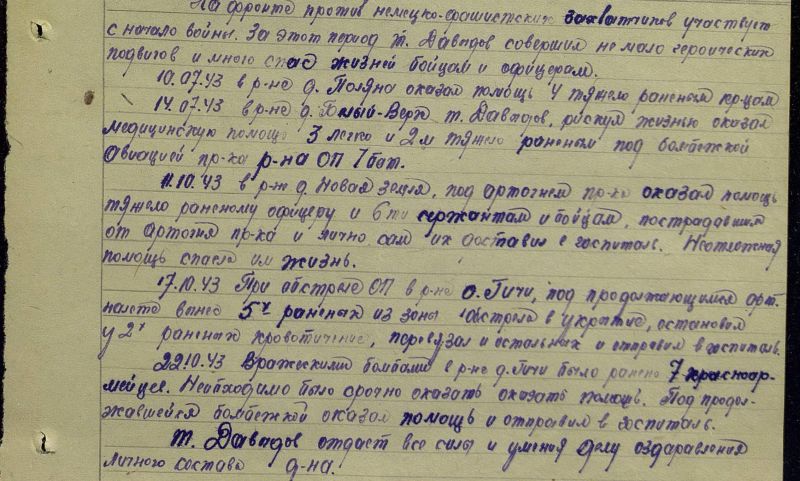 На фронте против немецко-фашистских захватчиков участвует
с начало войны. За этот период т. Давыдов совершил не мало героических
подвигов и много спас жизней бойцам и офицерам.
10.07.43 в р-не д. Поляна оказал помощь 4 тяжело раненым кр-цам
14.07.43 в р-не д. Верх т. Давыдов, рискуя жизнью оказал
медицинскую помощь 3 легко и 2м тяжело раненым под бомбежкой
авиацией пр-ка р-на ОП 7 бат.
11.10.43 в р-не д. Новая земля, под артогнем пр-ка оказал помощь
тяжело раненому офицеру и 6ти сержантам и бойцам, пострадавшим
от артогня пр-ка и лично сам их доставил в госпиталь. Неотложная
помощь спасла им жизнь.
17.10.43 При обстреле ОП в р-не о. Гичи, под продолжающимся арт.
налете вынес 5х раненых из зоны обстрела в укрытие, остановил
у 2х раненых кровотичение, перевязал и остальных и отправил в госпиталь.
22.10.43 Вражескими бомбами в р-не д. Гичи было ранено 7 красноар-
мейцев. Необходимо было срочно оказать оказать помощь. Под продол-
жавшейся бомбежкой оказал помощь и отправил в госпиталь.
т. Давыдов отдает все силы и умения делу оздаравления
личного состава д-на.